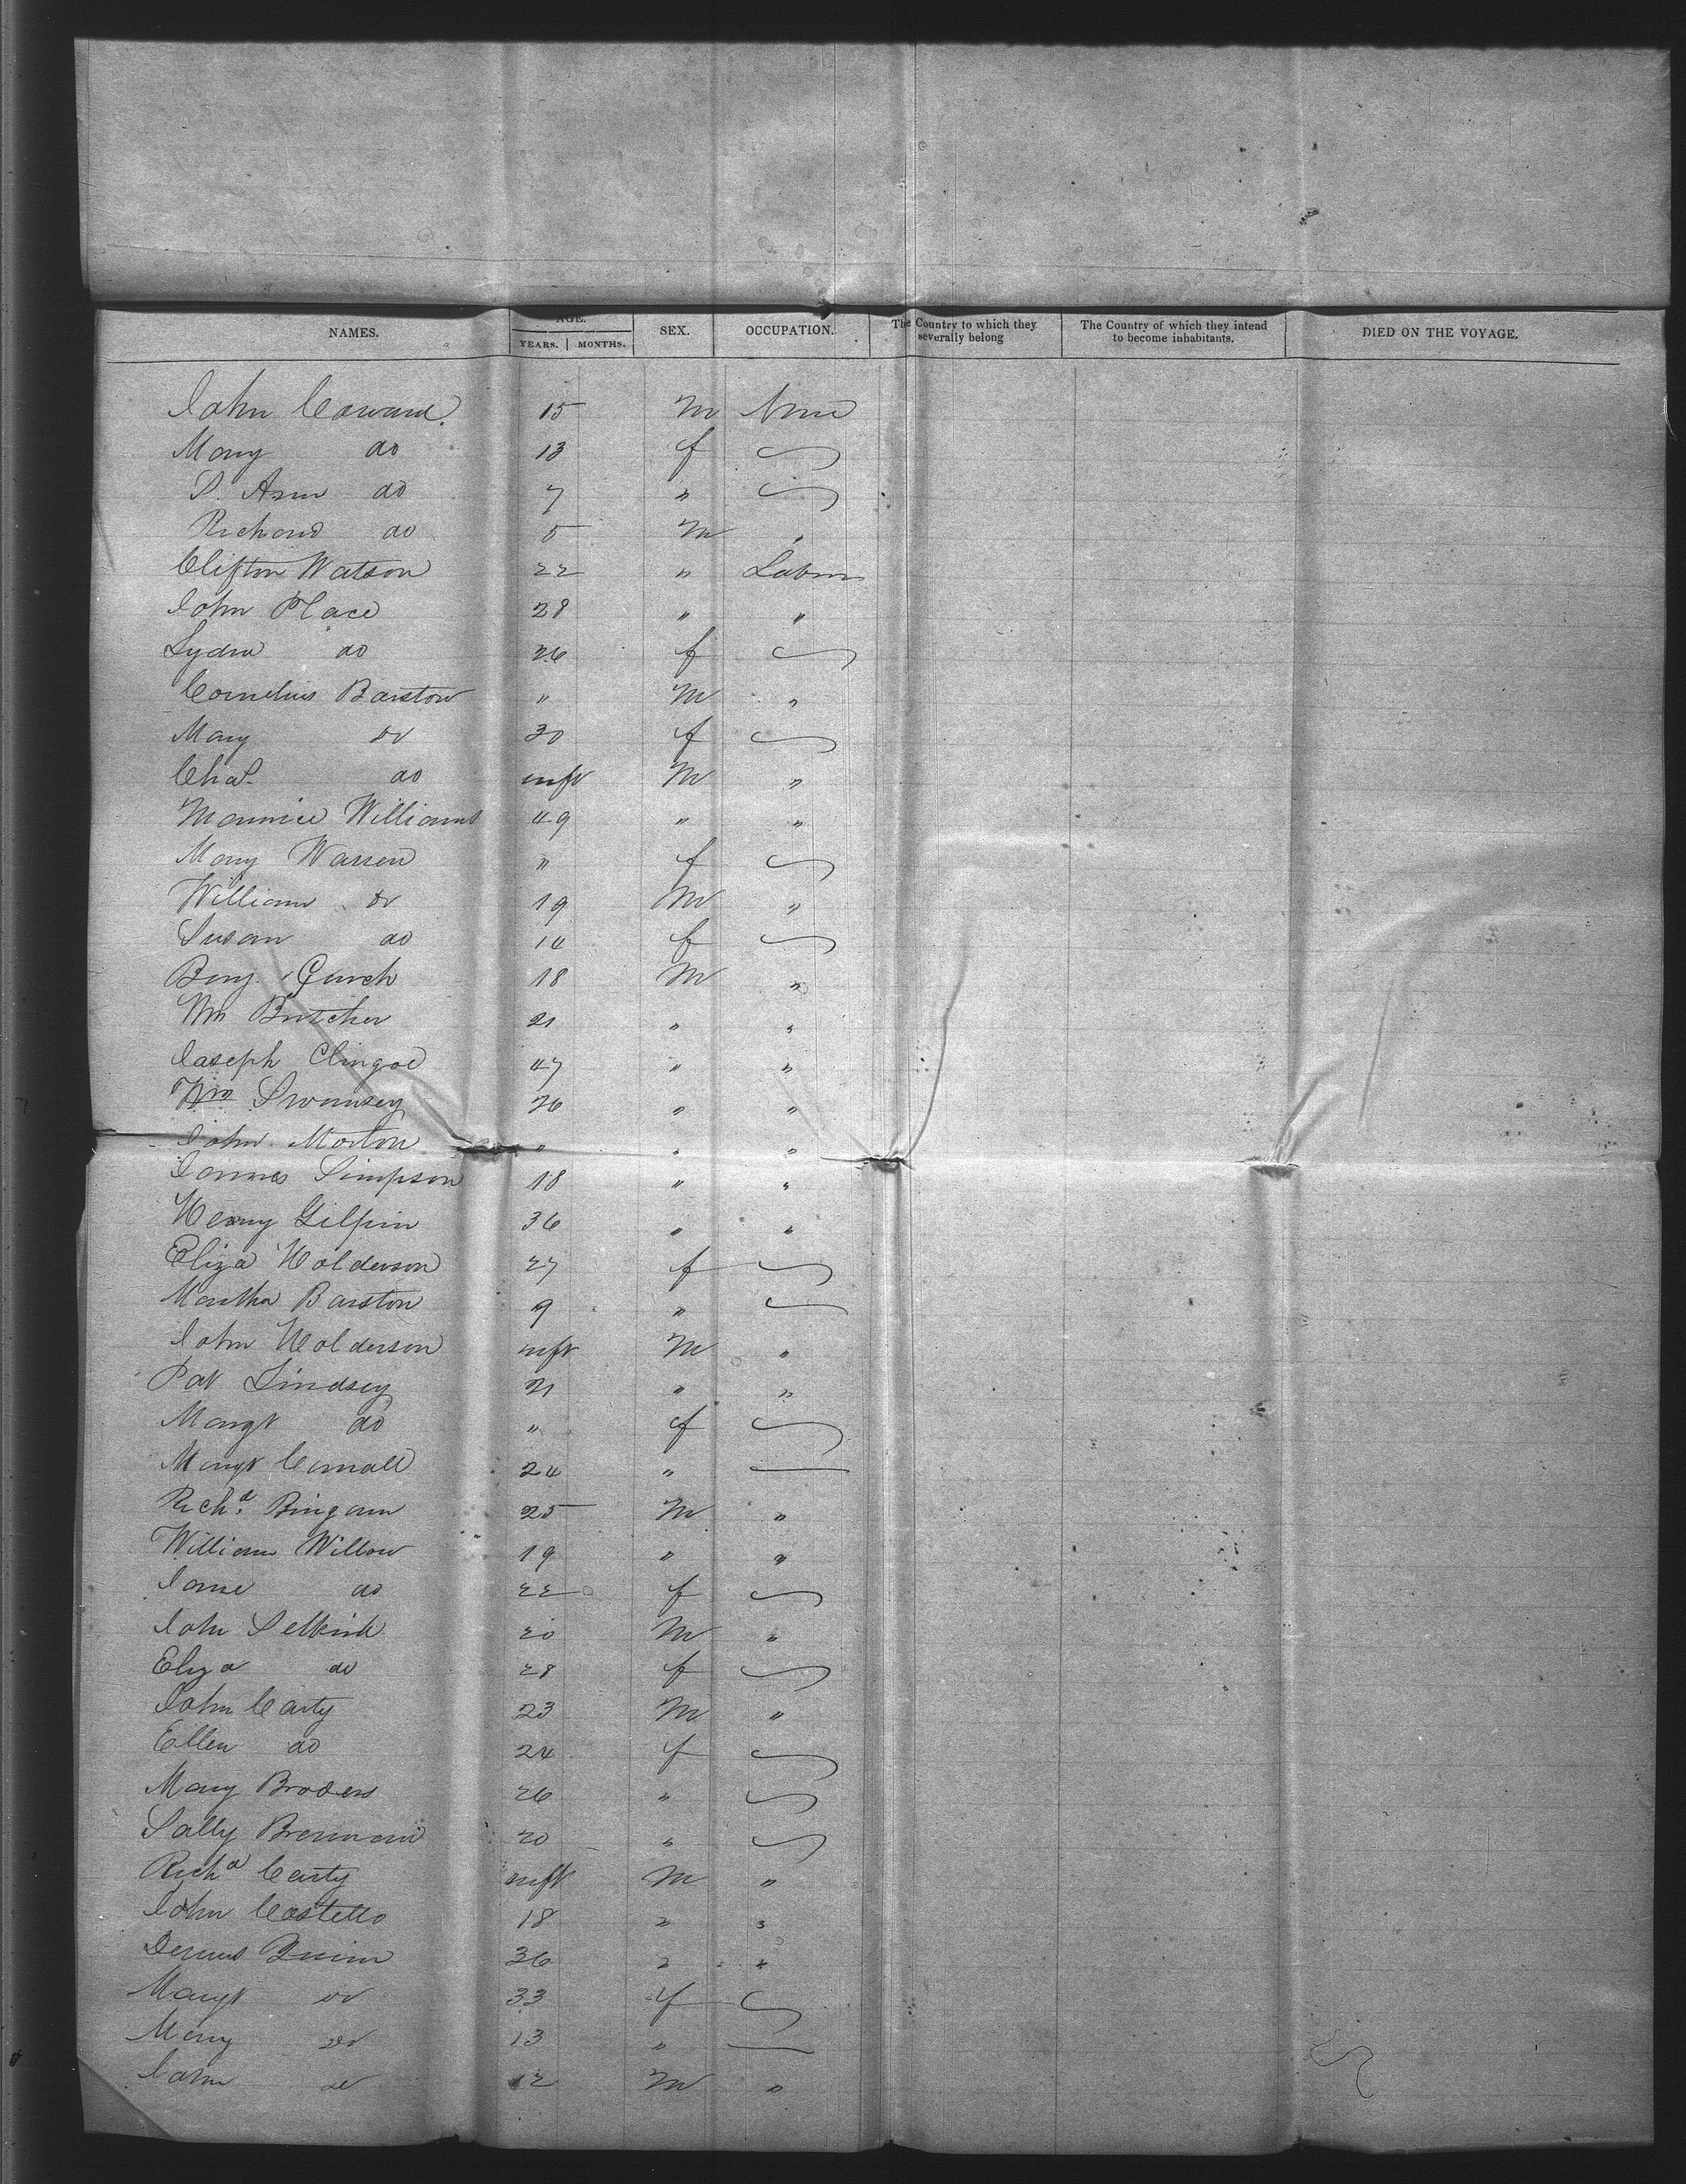 NAMES. AGE. SEX. OCCUPATION. The Country to which they severally belong The Country of which they intend to become inhabitants. DIED ON THE VOYAGE.
YEARS. MONTHS.
John Coward 15 M None
Mary do 13 f
S. Ann do 7 "
Richard do 5 M "
Clifton Watson 22 " Labour
John Place 28 " "
Lydia do 26 f
Cornelius Barstow " M "
Mary do 30 f
Chas. do inft M "
Maurice Williams 49 " "
Mary Warren " f
William do 19 M "
Susan do 14 f
Benj. 18 M "
Wm Butcher 21 " "
Joseph Clingoe 47 " "
Wm Swansey 26 " "
John Morton " " "
James Simpson 18 " "
Henry Gilpin 36 " "
Eliza Holderson 27 f
Martha Barstow 9 "
John Holderson inft M "
Pat Lindsey 21 " "
Margt do " f
Margt 24 "
Richd. Bingam 25 M "
William Willow 19 " "
Jane do 22 f
John Selkirk 20 M "
Eliza do 28 f
John Carty 23 M "
Ellen do 24 f
Mary Broders 26 "
Sally Brennan 20 "
Richd Carty inft M "
John Costello 18 " "
Dennis Quinn 36 " "
Margt do 33 f
Mary do 13 "
John do 12 M "